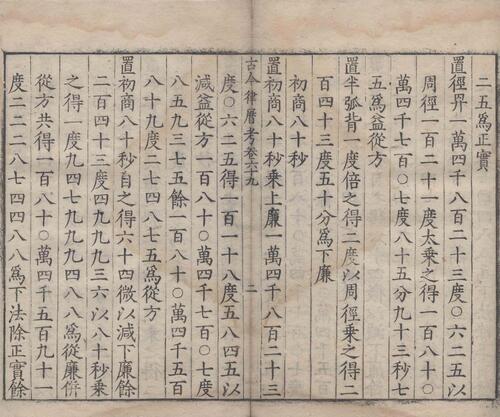 二五為正實
置徑界一萬四千八百二十三度〇六二五以
周徑一百二十一度太乘之得一百八十〇
萬四千七百〇七度八十五分九十三秒七
五為益從方
置半弧背一度倍之得二度以周徑乘之得二
百四十三度五十分為下廉
初商八十秒
置初商八十秒乘上廉一萬四千八百二十三
古今律曆考卷六十九 二
度〇六二五得一百一十八度五八四五以
減益從方一百八十〇萬四千七百〇七度
八五九三七五餘一百八十〇萬四千五百
八十九度二七四八七五為從方
置初商八十秒自之得六十四微以減下廉餘
二百四十三度四九九九三六以八十秒乘
之得一度九四七九九九四八八為從廉併
從方共得一百八十〇萬四千五百九十一
度二二二八七四四八八為下法除正實餘